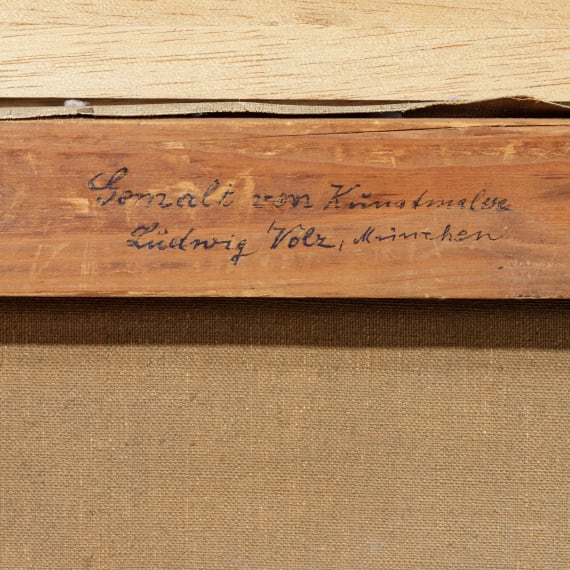 Gemalt von Kunstmaler
Ludwig Volz, München